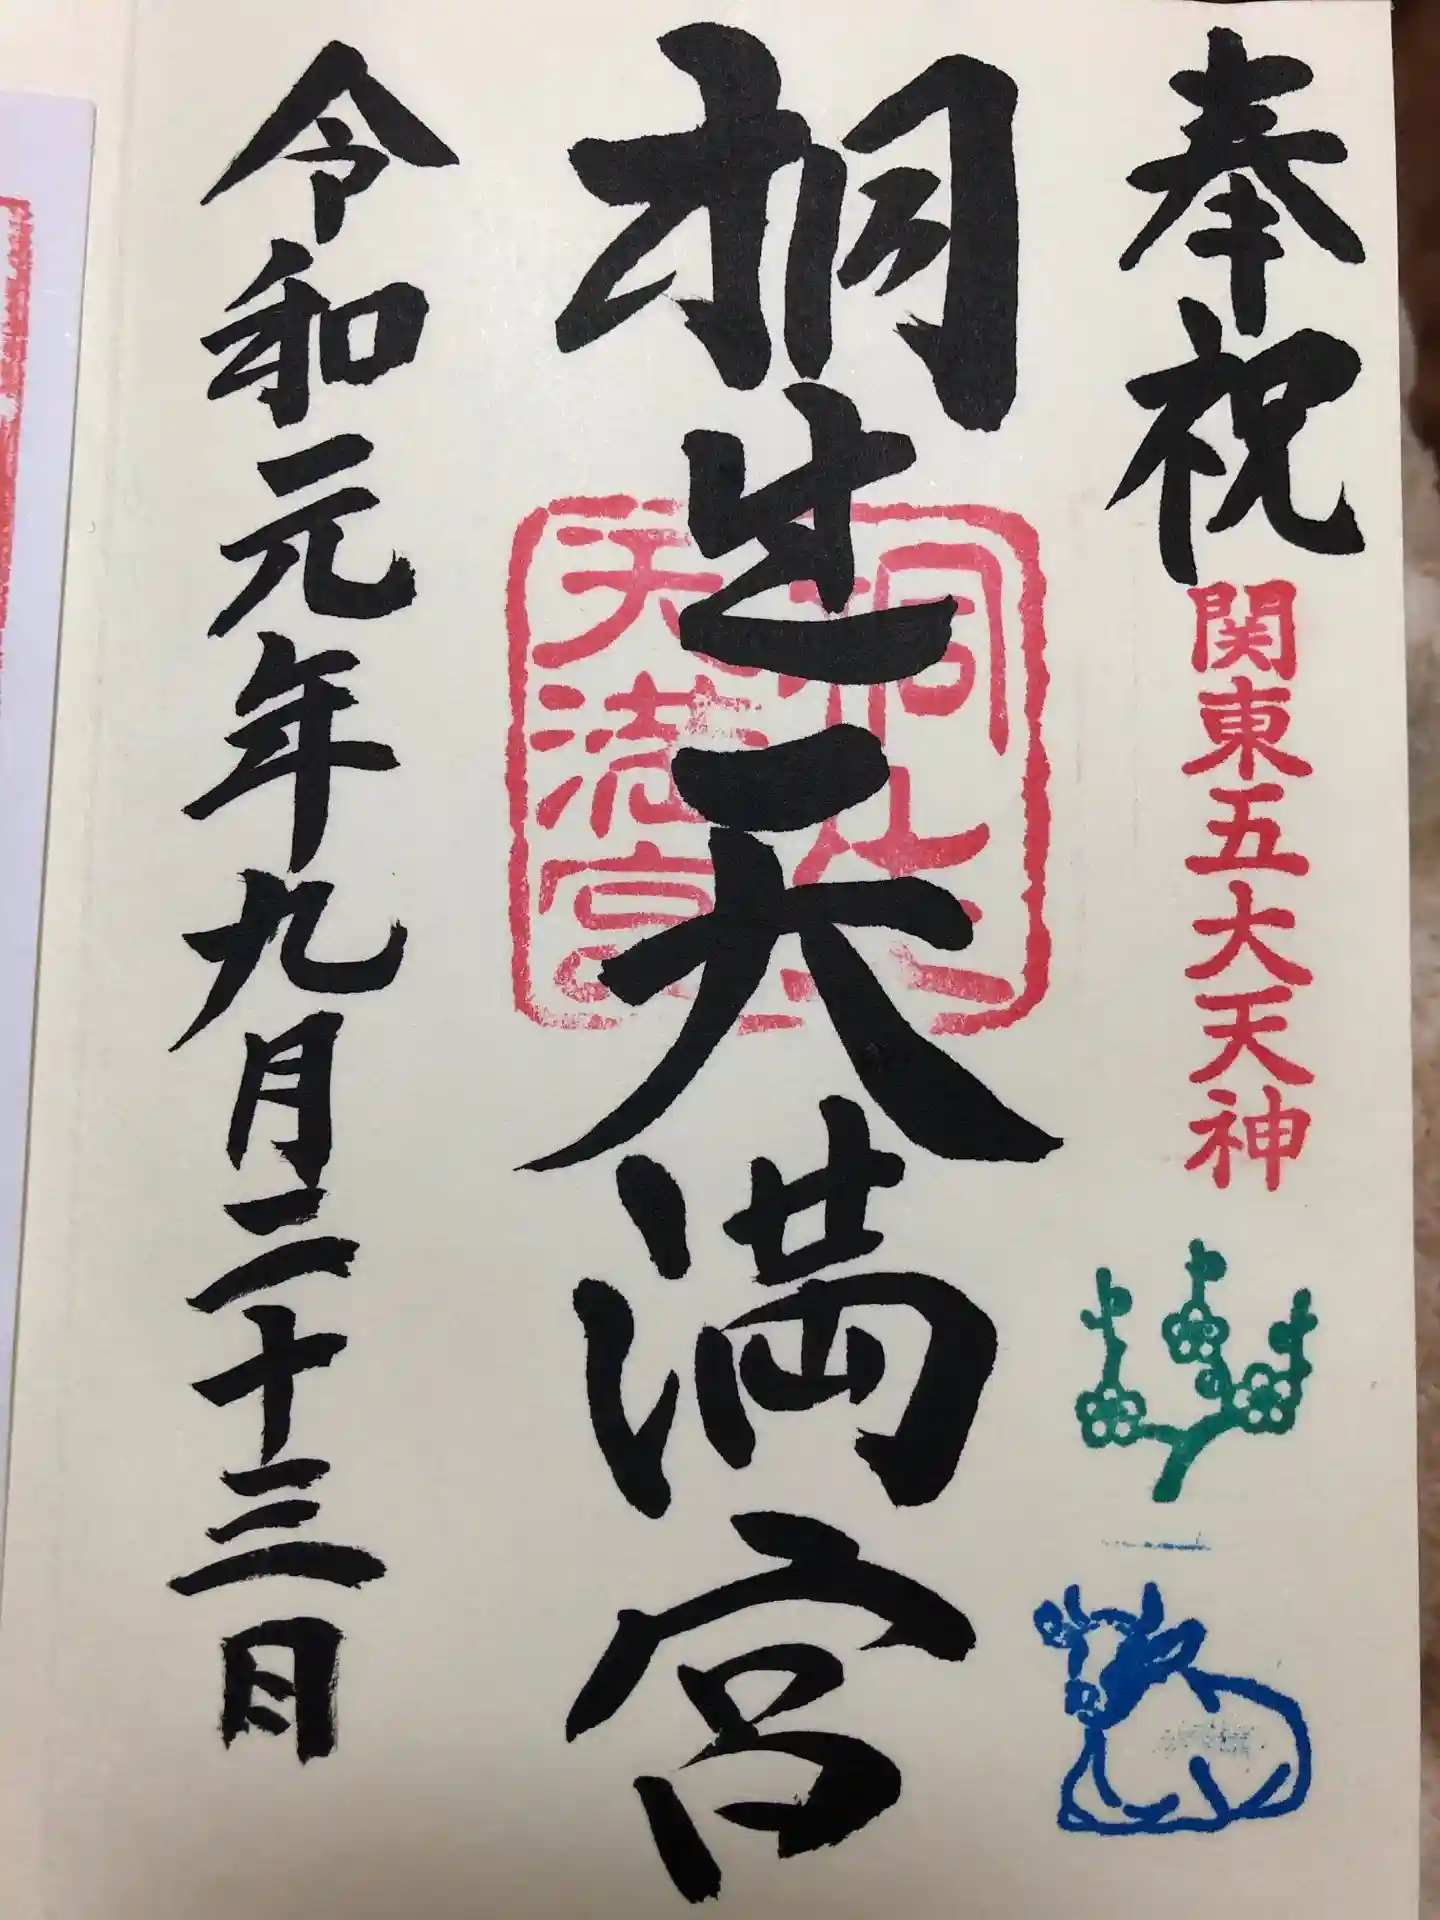 奉祝
関東五大天神
桐生天満宮
桐生
天満宮
令和元年九月二十三日